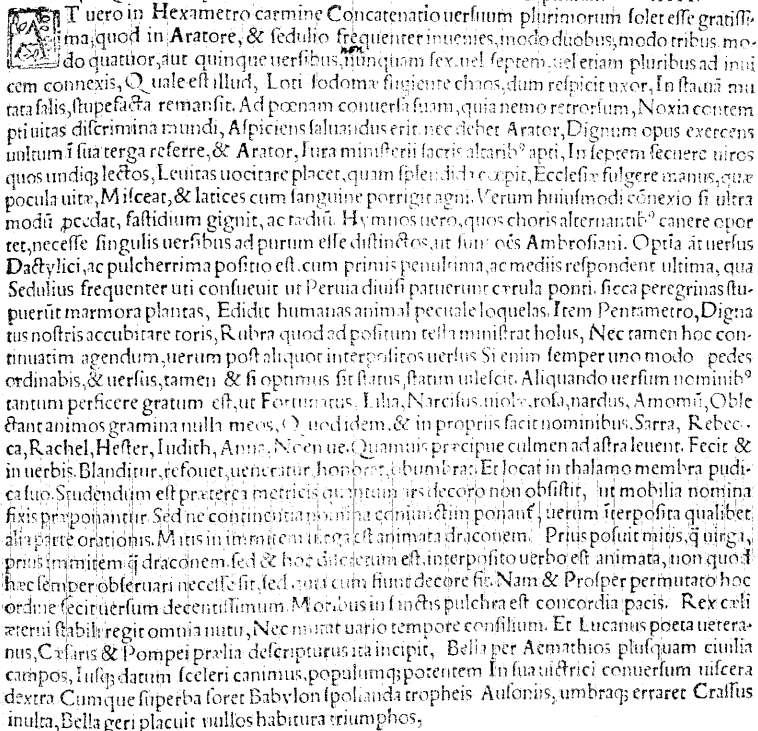 AT uero in Hexametro carmine Concatenatio uersuum plurimorum solet esse gratissi-
ma, quod in Aratore, & sedulio frequenter inuenies, modo duobus, modo tribus, mo-
do quatuor, aut quinque uersibus, non nunquam sex, uel septem, uel etiam pluribus ad inui
cem connexis, Quale est illud, Loti sodomæ fugiente chaos, dum respicit uxor, In statuā mu
tata salis, stupefacta remansit. Ad pœnam conuersa suam, quia nemo retrorsum, Noxia contem
pti uitas discrimina mundi, Aspiciens saluandus erit, nec debet Arator, Dignum opus exercens
uultum ī sua terga referre, & Arator, Iura ministerii sacris altaribꝰ apti, In septem secuere uiros
quos undiqꝫ lectos, Leuitas uocitare placet, quam splendida cœpit, Ecclesiæ fulgere manus, quæ
pocula uitæ, Misceat, & latices cum sanguine porrigit agni. Verum huiusmodi cōnexio si ultra
modū ꝓcedat, fastidium gignit, ac tædiū. Hymnos uero, quos choris alternantibꝰ canere opor
tet, necesse singulis uersibus ad purum esse distinctos, ut sunt oēs Ambrosiani. Optīa āt uersus
Dactylici, ac pulcherrima positio est, cum primis penultima, ac mediis respondent ultima, qua
Sedulius frequenter uti consueuit ut Peruia diuisi patuerunt cærula ponti. sicca peregrinas stu-
puerūt marmora plantas, Edidit humanas animal pecuale loquelas. Item Pentametro, Digna
tus nostris accubitare toris, Rubra quod ad positum testa ministrat holus, Nec tamen hoc con-
tinuatim agendum, uerum post aliquot interpositos uersus Si enim semper uno modo pedes
ordinabis, & uersus, tamen & si optimus sit status, statim uilescit. Aliquando uersum nominibꝰ
tantum perficere gratum est, ut Fortunatus. Lilia, Narcisus, uiolæ, rosa, nardus, Amomū, Oble
ctant animos gramina nulla meos, Quod idem, & in propriis facit nominibus. Sarra, Rebec-
ca, Rachel, Hester, Iudith, Anna, Noen ue. Quamuis præcipue culmen ad astra leuent. Fecit &
in uerbis. Blanditur, refouet, ueneratur, honorat, obumbrat. Et locat in thalamo membra pudi-
ca suo. Studendum est præterea metricis quantum ars decoro non obsistit, ut mobilia nomina
fixis præponantur. Sed ne continentia nomina coniunctim ponant, uerum īterposita qualibet
alia parte orationis. Mitis in immitem uirga est animata draconem. Prius posuit mitis, q̄ uirga,
prius immitem q̄ draconem. sed & hoc discretum est, interposito uerbo est animata, non quod
hæc semper obseruari necesse sit, sed quia cum fiunt decore fit. Nam & Prosper permutato hoc
ordine fecit uersum decentissimum. Moribus in sanctis pulchra est concordia pacis. Rex cæli
æterni stabili regit omnia nutu, Nec mutat uario tempore consilium. Et Lucanus poeta uetera-
nus, Cæsaris & Pompei prælia descripturus ita incipit, Bella per Aemathios plusquam ciuilia
campos, Iusqꝫ datum sceleri canimus, populumqꝫ potentem In sua uictrici conuersum uiscera
dextra Cumque superba foret Babylon spolianda tropheis Ausoniis, umbraqꝫ erraret Crassus
inulta, Bella geri placuit nullos habitura triumphos,